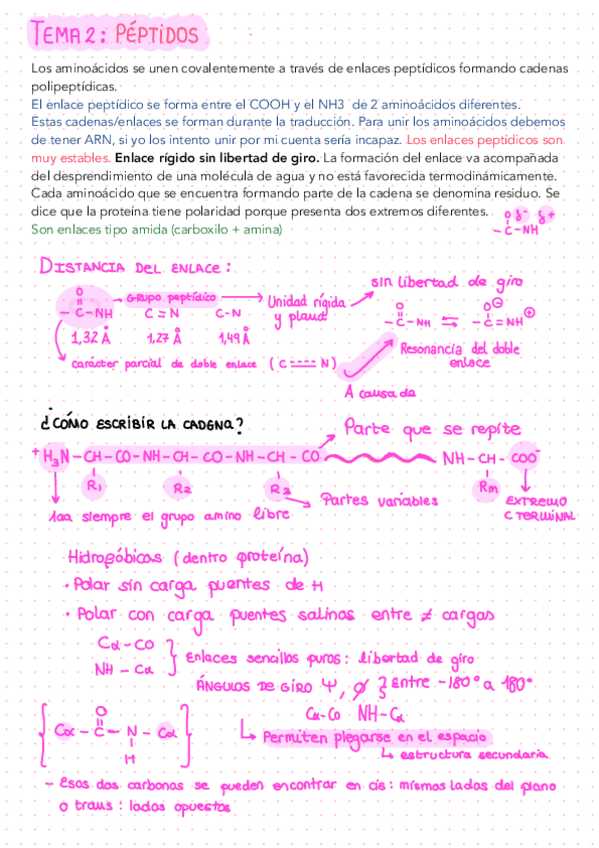 TEMA 2: PÉPTIDOS
Los aminoácidos se unen covalentemente a través de enlaces peptídicos formando cadenas
polipeptídicas.
El enlace peptídico se forma entre el COOH y el NH3 de 2 aminoácidos diferentes.
Estas cadenas/enlaces se forman durante la traducción. Para unir los aminoácidos debemos
de tener ARN, si yo los intento unir por mi cuenta sería incapaz. Los enlaces peptídicos son
muy estables. Enlace rígido sin libertad de giro. La formación del enlace va acompañada
del desprendimiento de una molécula de agua y no está favorecida termodinámicamente.
Cada aminoácido que se encuentra formando parte de la cadena se denomina residuo. Se
dice que la proteína tiene polaridad porque presenta dos extremos diferentes.
O δ- δ+
- C - NH
Son enlaces tipo amida (carboxilo + amina)
DISTANCIA DEL ENLACE:
sin libertad de giro
O
- C - NH
Grupo peptídico
C = N
C - N
Unidad rígida
y plana
1,32 Å
1,27 Å
1,49 Å
O
- C - NH ⇌ - C = NH ⊕
O ⊖
Resonancia del doble
enlace
carácter parcial de doble enlace (C ---- N)
A causa de
¿CÓMO ESCRIBIR LA CADENA?
Parte que se repite
+H3N - CH - CO - NH - CH - CO - NH - CH - CO
NH - CH - COO-
R1
R2
R3
Rm
Partes variables
EXTREMO
C TERMINAL
1aa siempre el grupo amino libre
Hidrofóbicos (dentro proteína)
· Polar sin carga puentes de H
· Polar con carga puentes salinos entre ≠ cargas
Cα - CO
NH - Cα
Enlaces sencillos puros: libertad de giro
ÁNGULOS DE GIRO Ψ, ϕ } entre -180° a 180°
Cα-Co NH-Cα
Permiten plegarse en el espacio
estructura secundaria
O
Cα - C - N - Cα
H
- Esos dos carbonos se pueden encontrar en cis: mismos lados del plano
o trans: lados opuestos